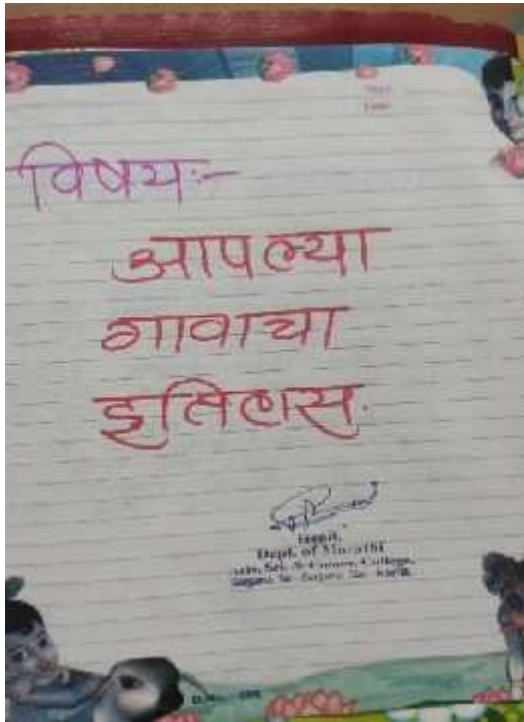 विषय:-
आपल्या
गावाचा
इतिहास.
Dept. of Marathi